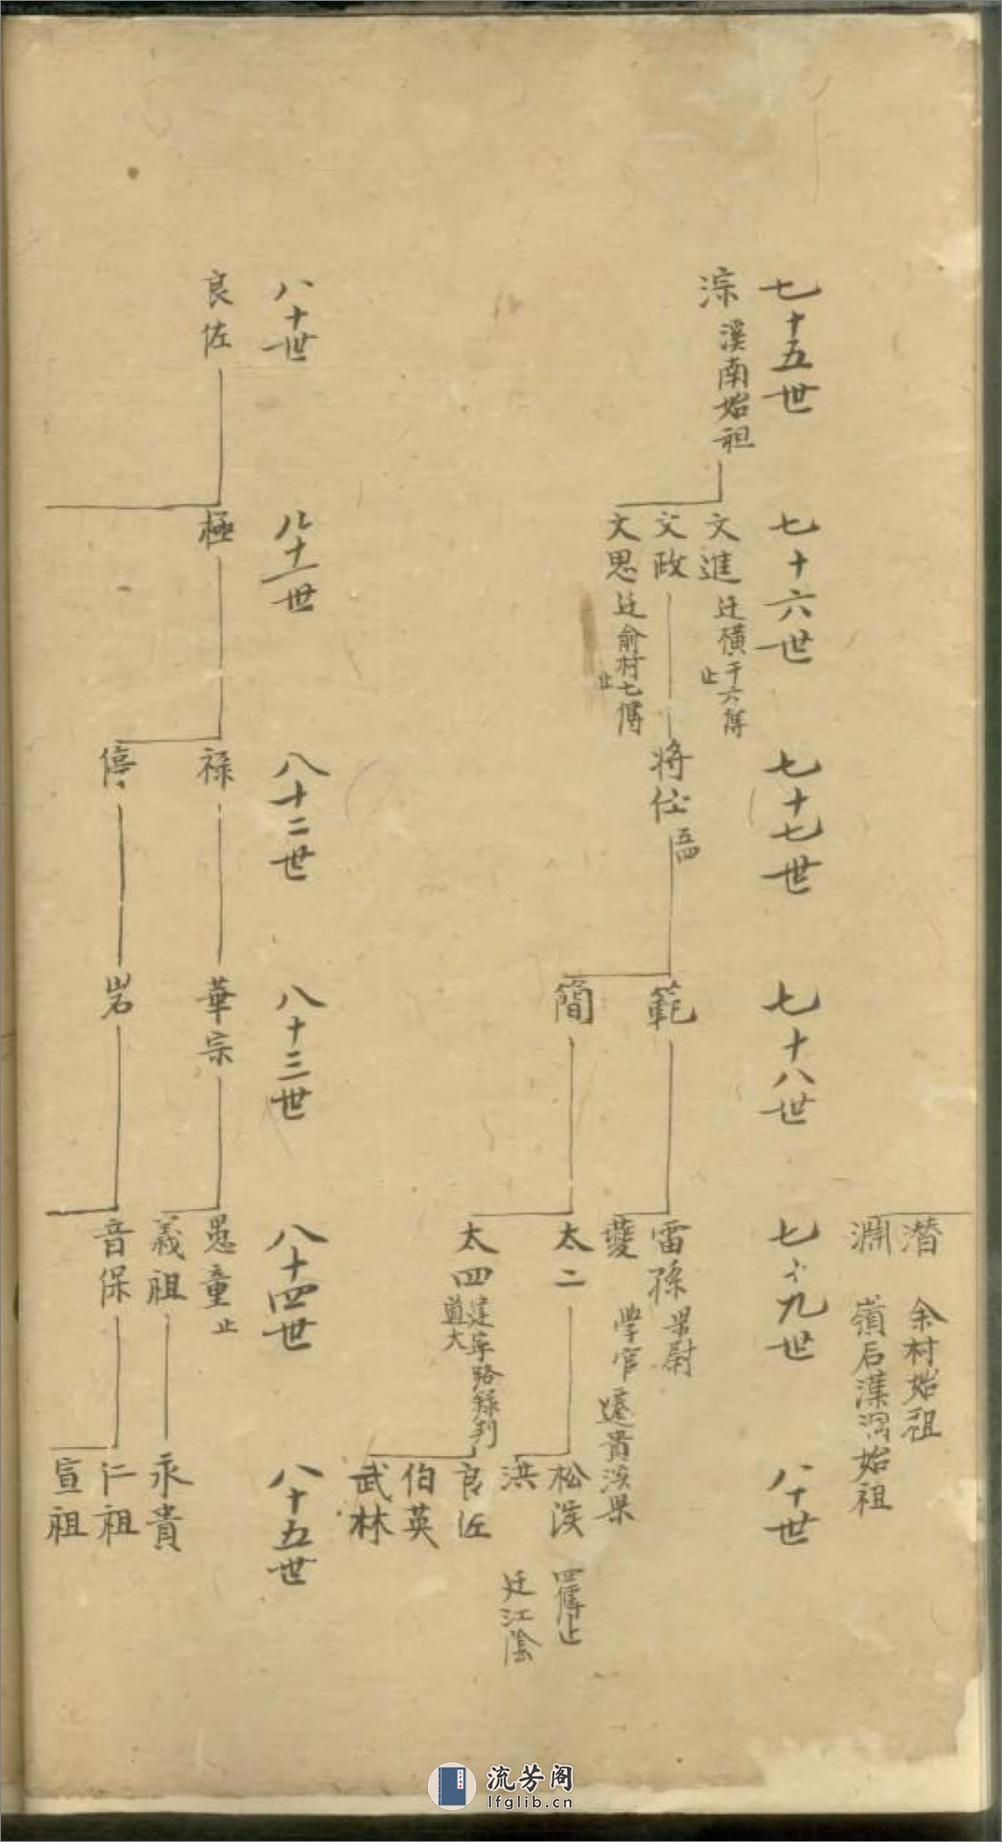 潜 余村始祖
淵 嶺后藻溪始祖
七十五世
淙 溪南始祖
七十六世
文進 迁横干六傳止
文政
文思 迁俞村七傳止
七十七世
将仕
七十八世
範
簡
七十九世
雷孫 県尉
夔 学官 遷貴溪県
太二
太四 建寧路録判 道大
八十世
松溪 四傳止
洪 迁江陰
良佐
伯英
武林
八十世
良佐
八十一世
極
八十二世
禄
停
八十三世
華宗
岩
八十四世
愚童 止
義祖
音保
八十五世
永貴
仁祖
宣祖
流芳阁
lfglib.cn